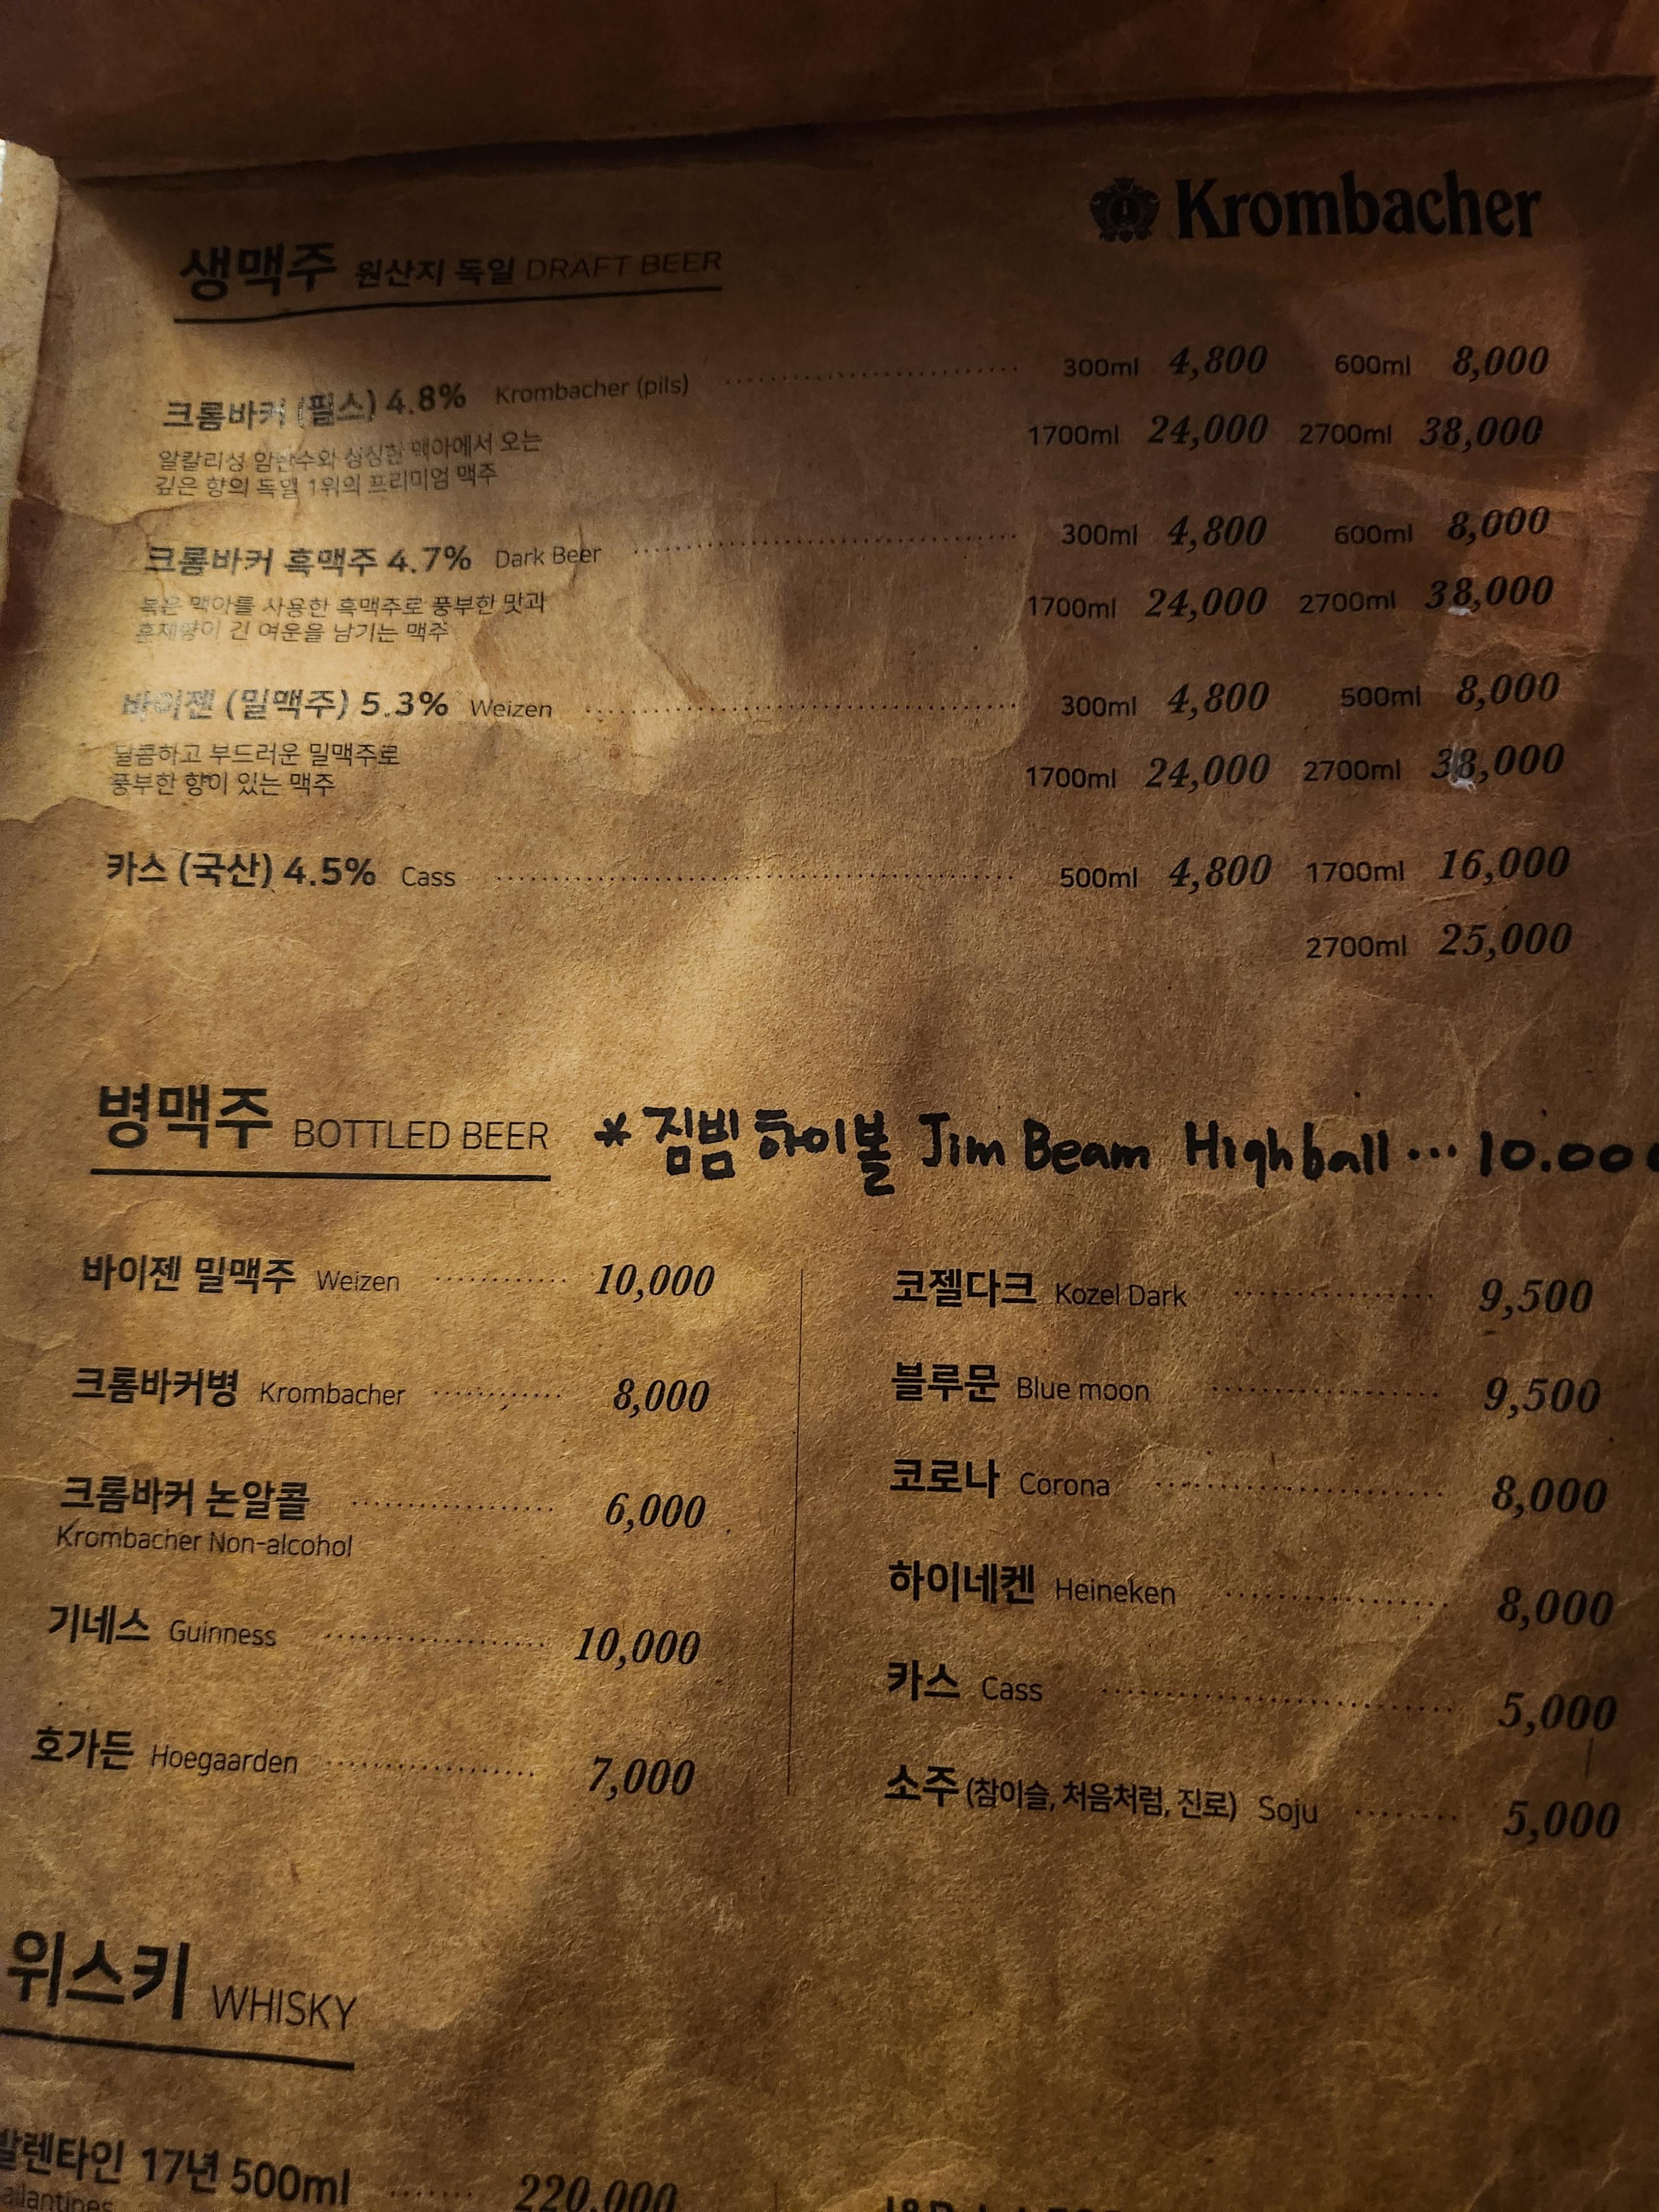 Krombacher
생맥주 원산지 독일 DRAFT BEER
크롬바커 (필스) 4.8% Krombacher (pils) 300ml 4,800 600ml 8,000
1700ml 24,000 2700ml 38,000
알칼리성 암반수와 싱싱한 맥아에서 오는
깊은 향의 독일 1위의 프리미엄 맥주
크롬바커 흑맥주 4.7% Dark Beer 300ml 4,800 600ml 8,000
1700ml 24,000 2700ml 38,000
볶은 맥아를 사용한 흑맥주로 풍부한 맛과
훈제향이 긴 여운을 남기는 맥주
바이젠 (밀맥주) 5.3% Weizen 300ml 4,800 500ml 8,000
1700ml 24,000 2700ml 38,000
달콤하고 부드러운 밀맥주로
풍부한 향이 있는 맥주
카스 (국산) 4.5% Cass 500ml 4,800 1700ml 16,000
2700ml 25,000
병맥주 BOTTLED BEER
* 짐빔 하이볼 Jim Beam Highball ... 10.000
바이젠 밀맥주 Weizen 10,000
크롬바커병 Krombacher 8,000
크롬바커 논알콜 6,000
Krombacher Non-alcohol
기네스 Guinness 10,000
호가든 Hoegaarden 7,000
코젤다크 Kozel Dark 9,500
블루문 Blue moon 9,500
코로나 Corona 8,000
하이네켄 Heineken 8,000
카스 Cass 5,000
소주 (참이슬, 처음처럼, 진로) Soju 5,000
위스키 WHISKY
발렌타인 17년 500ml 220,000